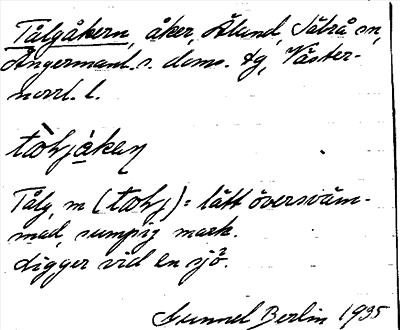 Tålgåkern, åker, Ålund, Sätrå sn,
Ångermanl. s. doms. dg, Väster-
norrl. l.
Tålg, m (     ) = lätt översväm-
mad, sumpig mark.
Ligger vid en sjö.
Gunnel Berlin 1935